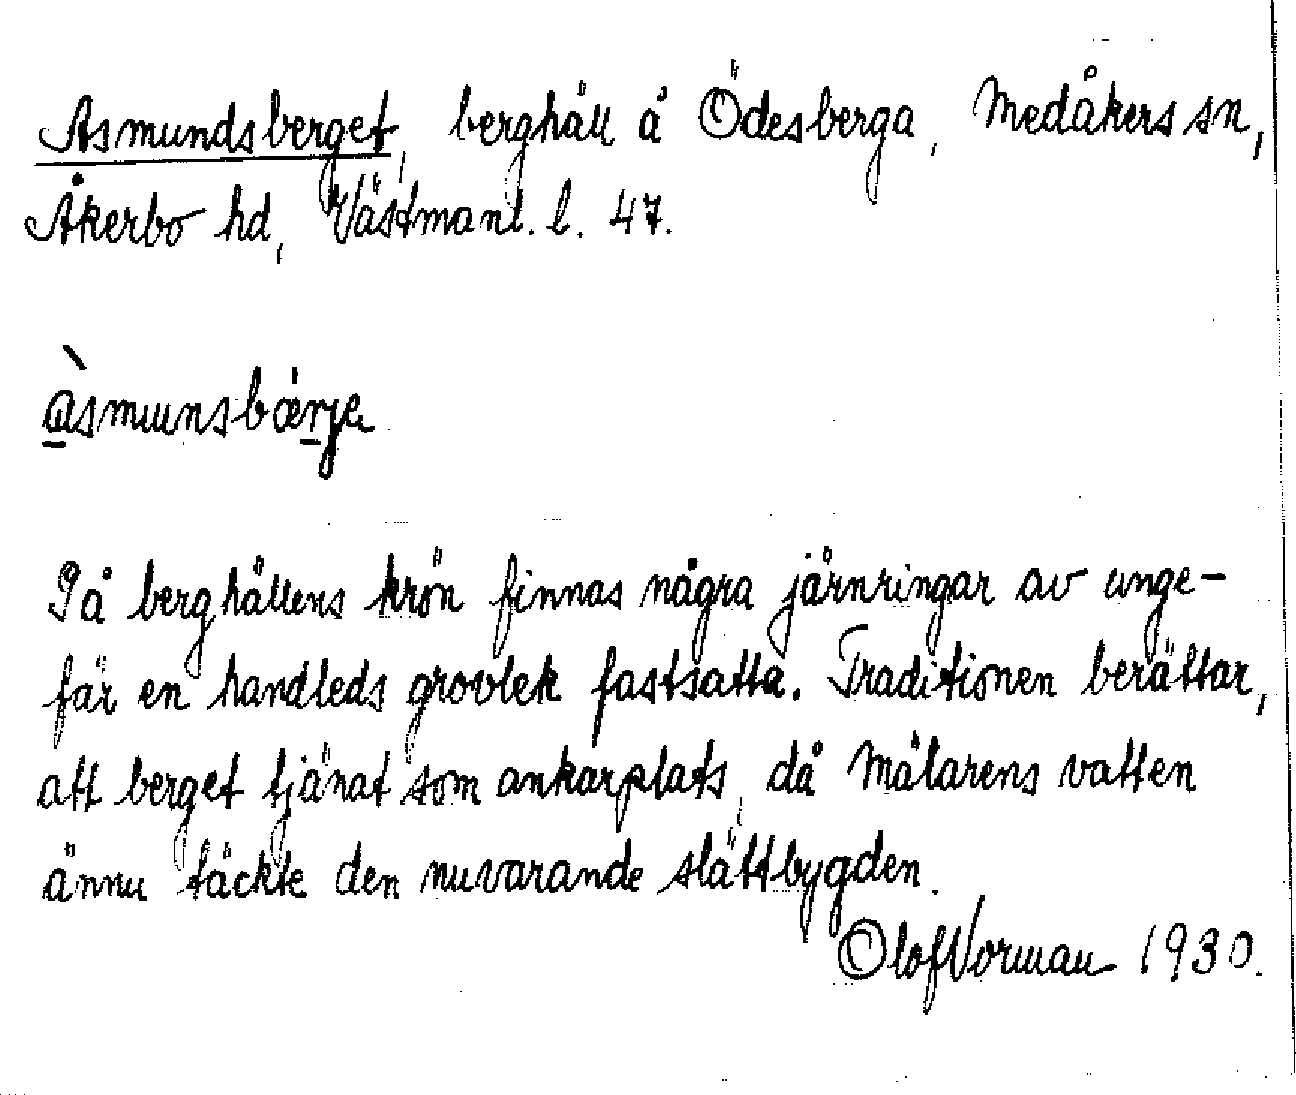 Asmundsberget, berghäll å Ödesberga, Medåkers sn,
Åkerbo hd, Västmanl. l. 47.
àsmunsbærje
På berghällens krön finnas några järnringar av unge-
fär en handleds grovlek fastsatta. Traditionen berättar,
att berget tjänat som ankarplats, då Mälarens vatten
ännu täckte den nuvarande slättbygden.
Olof Norman 1930.